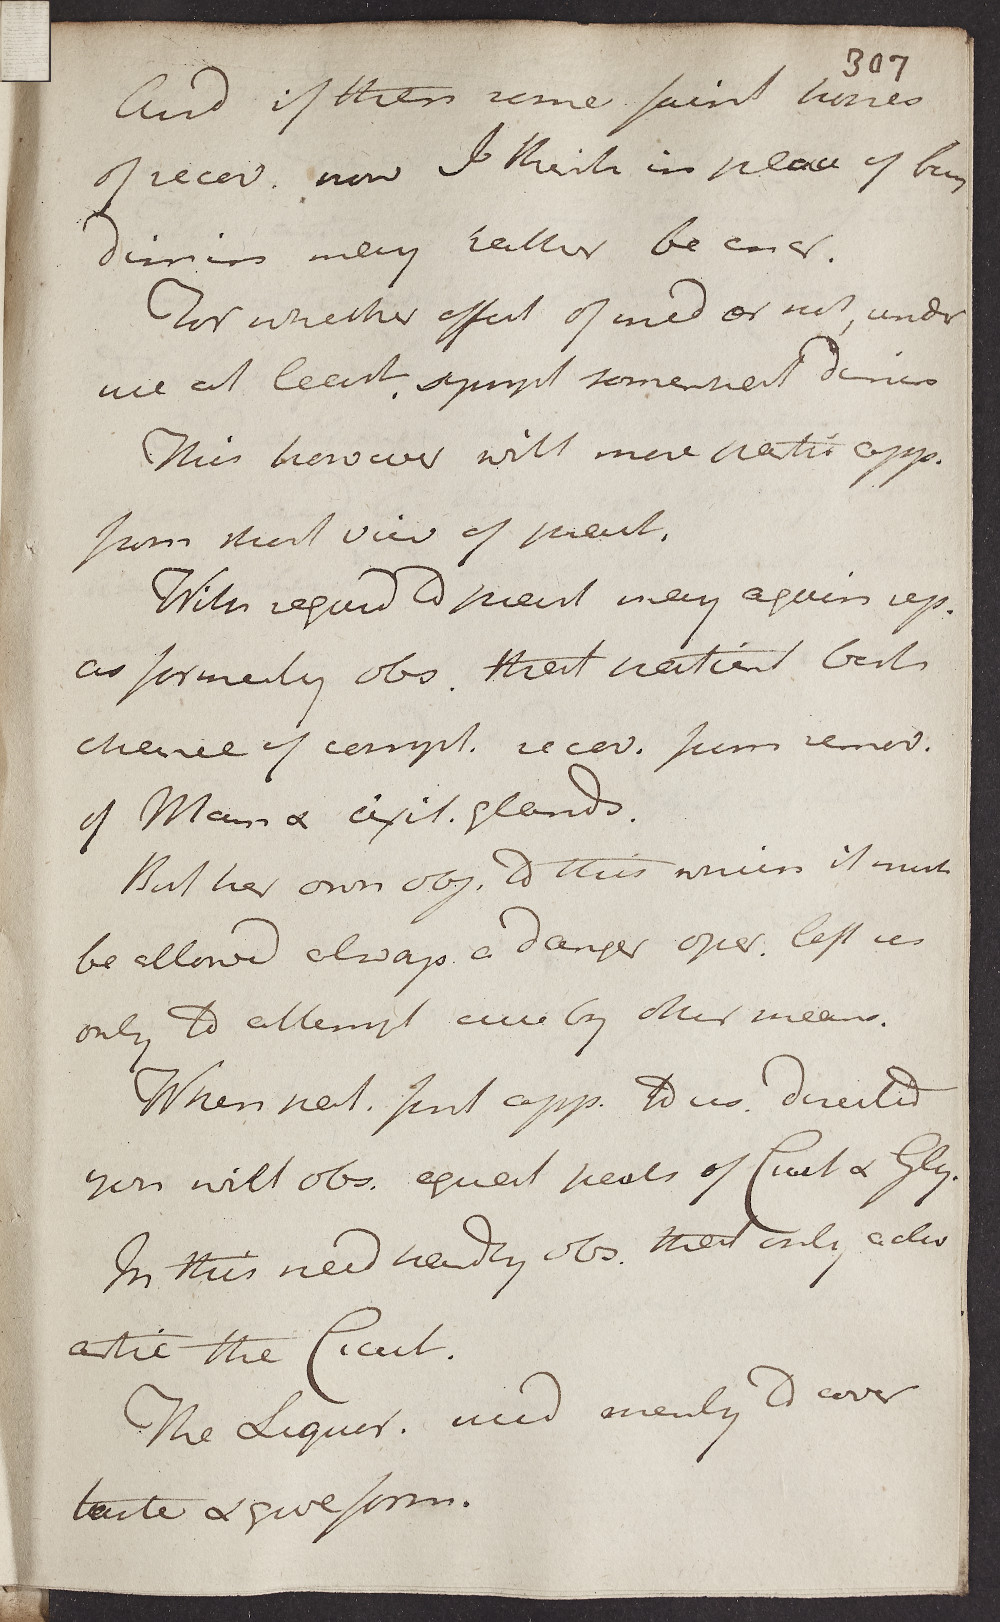 307
And if then some faint hopes
of recov. now I think in place of being
dimin may rather be encr.
For whether effect of med or not, under
use at least, sympt somewhat dimin
This however will more partic app.
from short view of pract.
With regard to pract may again rep.
as formerly obs. that patient best
chance of compl. recov. from remov.
of Mam & axil. glands.
But her own obj. to this which it must
be allowed always a danger oper. left us
only to attempt cure by other means.
When pat. first app. to us. directed
you will obs. equal parts of Cicut & Gly.
In this need hardly obs. that only
the Cicut.
The Liquor. used merely to cover
taste & give form.